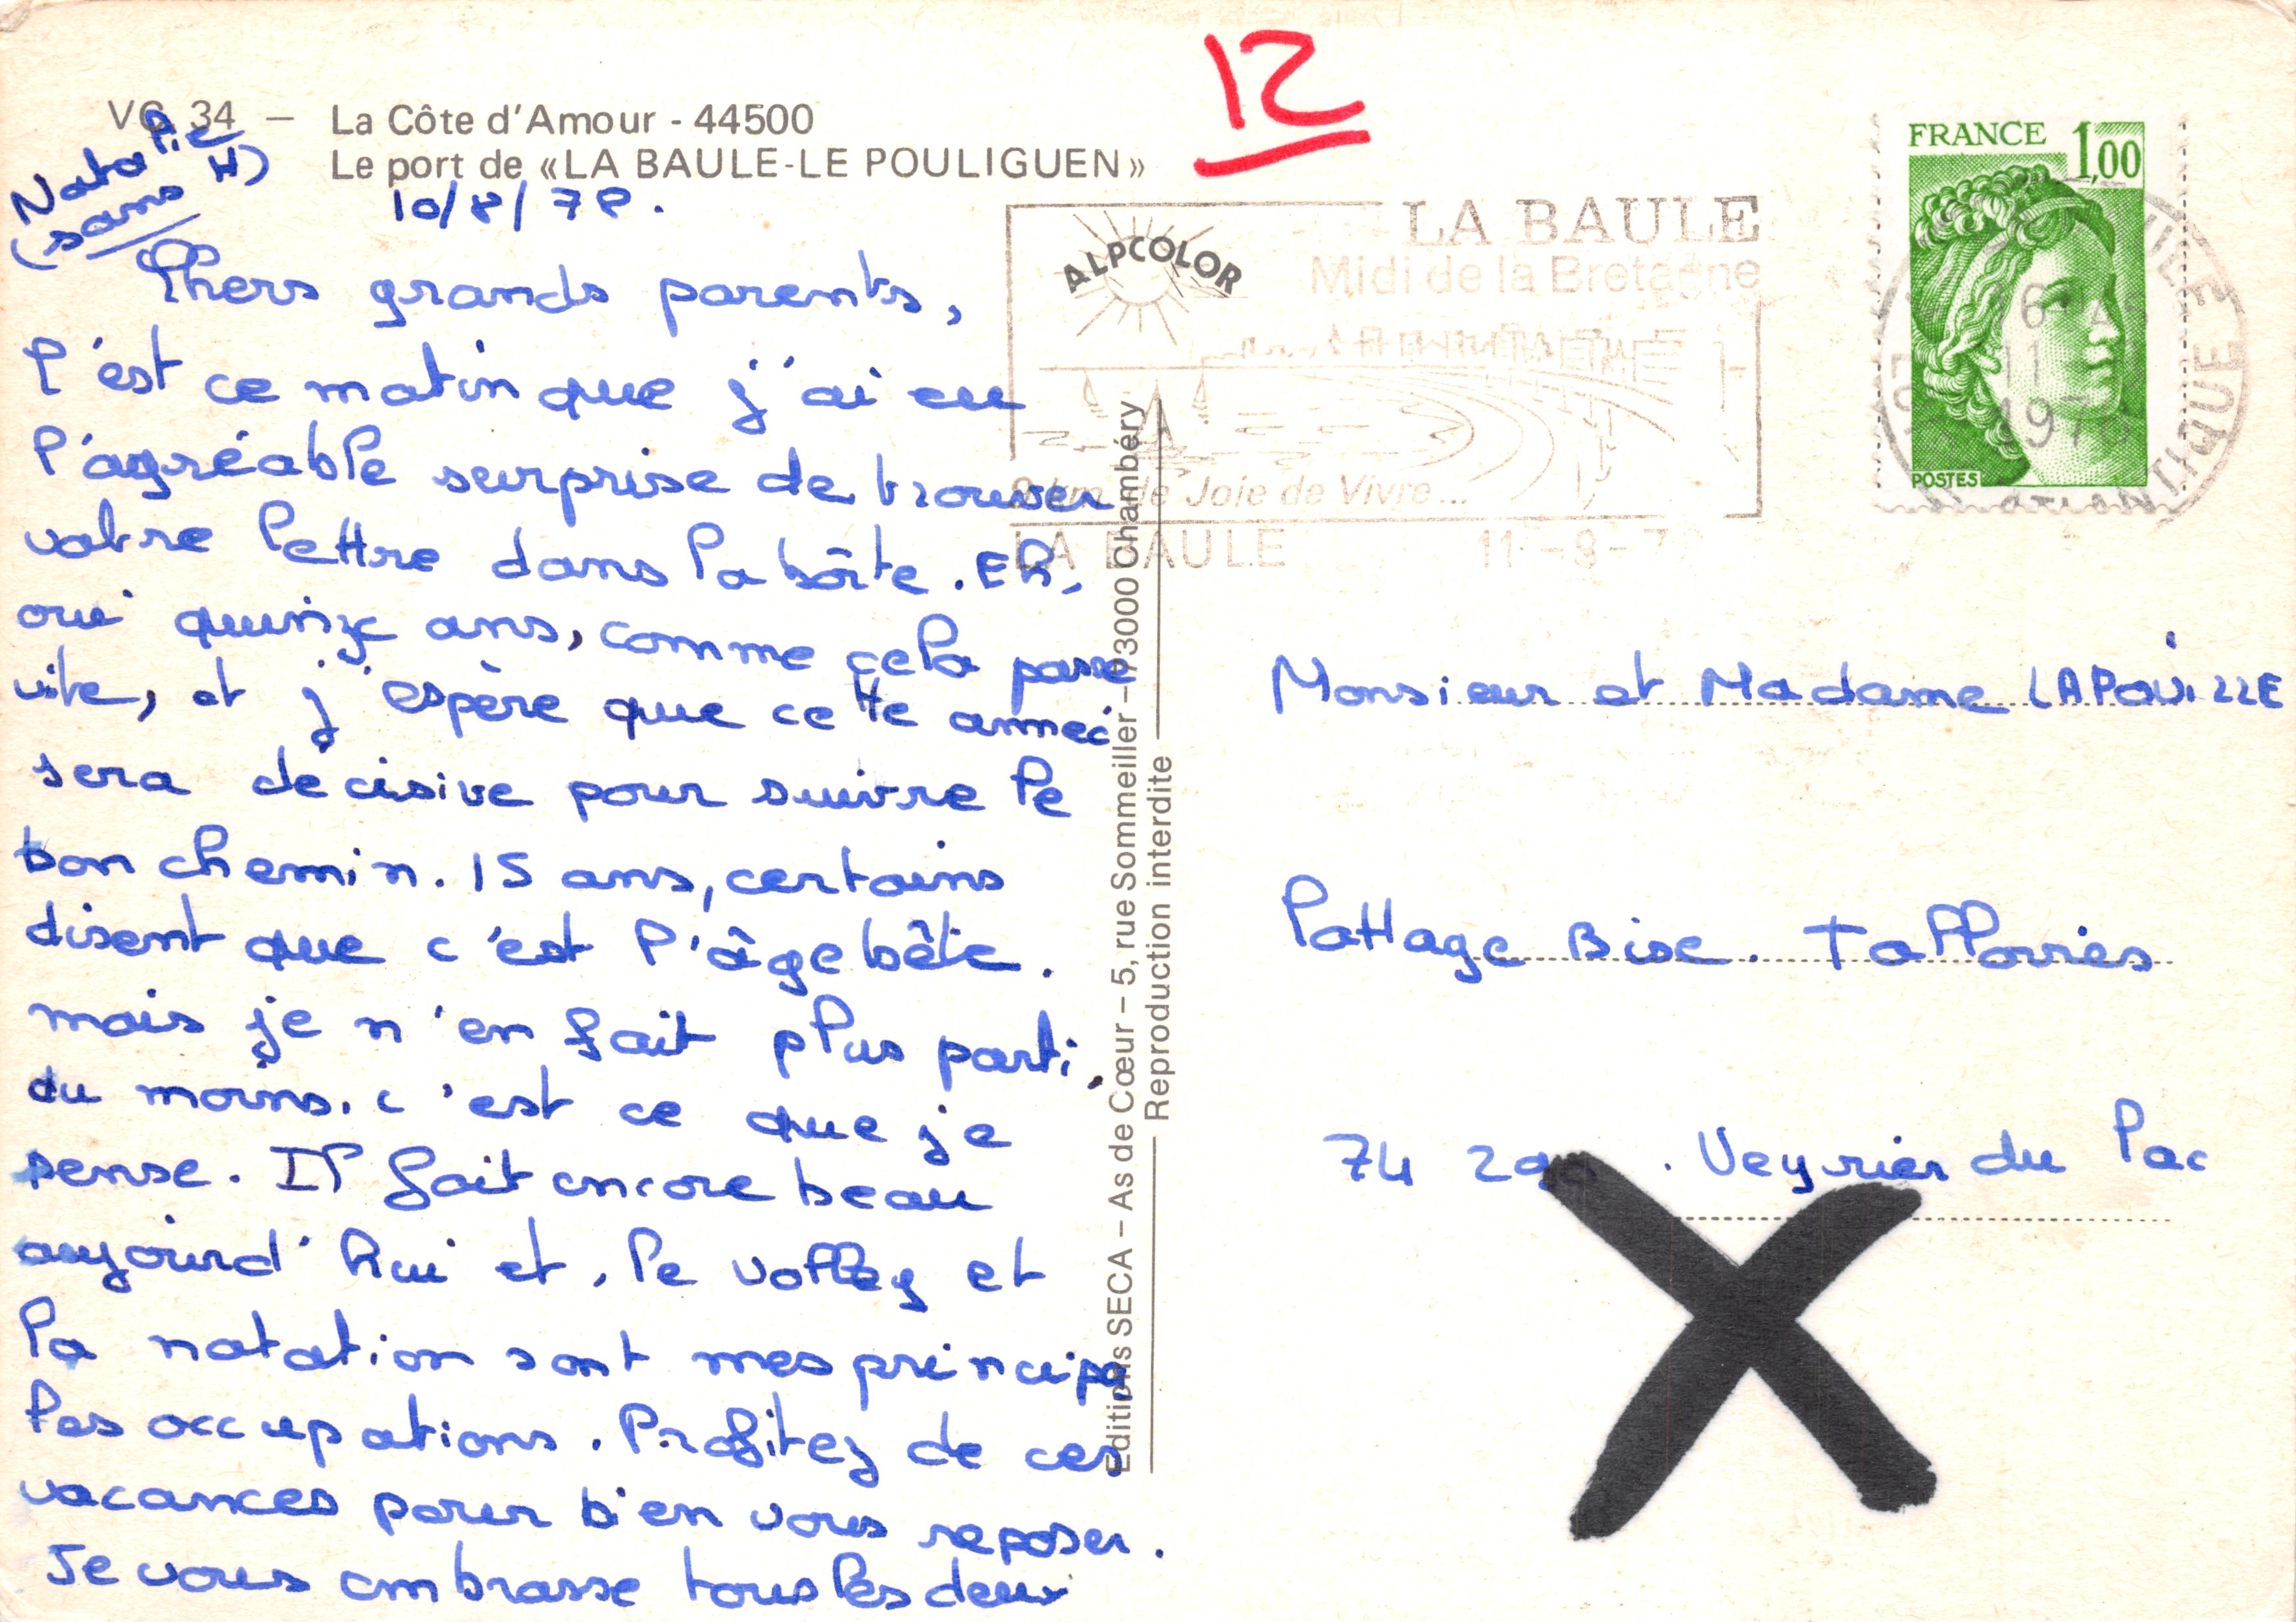 12
VG 34 — La Côte d'Amour - 44500
Le port de «LA BAULE-LE POULIGUEN»
Natalie
(sans H)
10/8/78.
Chers grands parents,
C'est ce matin que j'ai eu
l'agréable surprise de trouver
votre lettre dans la bôite. Eh,
oui quinze ans, comme cela passe
vite, et j'espère que cette année
sera décisive pour suivre le
bon chemin. 15 ans, certains
disent que c'est l'âge bête.
mais je n'en fait plus parti,
du moins, c'est ce que je
pense. Il fait encore beau
aujourd'hui et, le volley et
la natation sont mes principa
les occupations. Profitez de ces
vacances pour bien vous reposer.
Je vous embrasse tous les deux
ALPCOLOR
LA BAULE
Midi de la Bretagne
9 km de Joie de Vivre...
LA BAULE 11-8-7
Editions SECA – As de Cœur – 5, rue Sommeiller – 73000 Chambéry
Reproduction interdite
FRANCE 1,00
POSTES
16H45
11
1978
ATLANTIQUE
Monsieur et Madame LAPOUILLE
Cottage Bise. Talloires
74 290. Veyrier du Lac